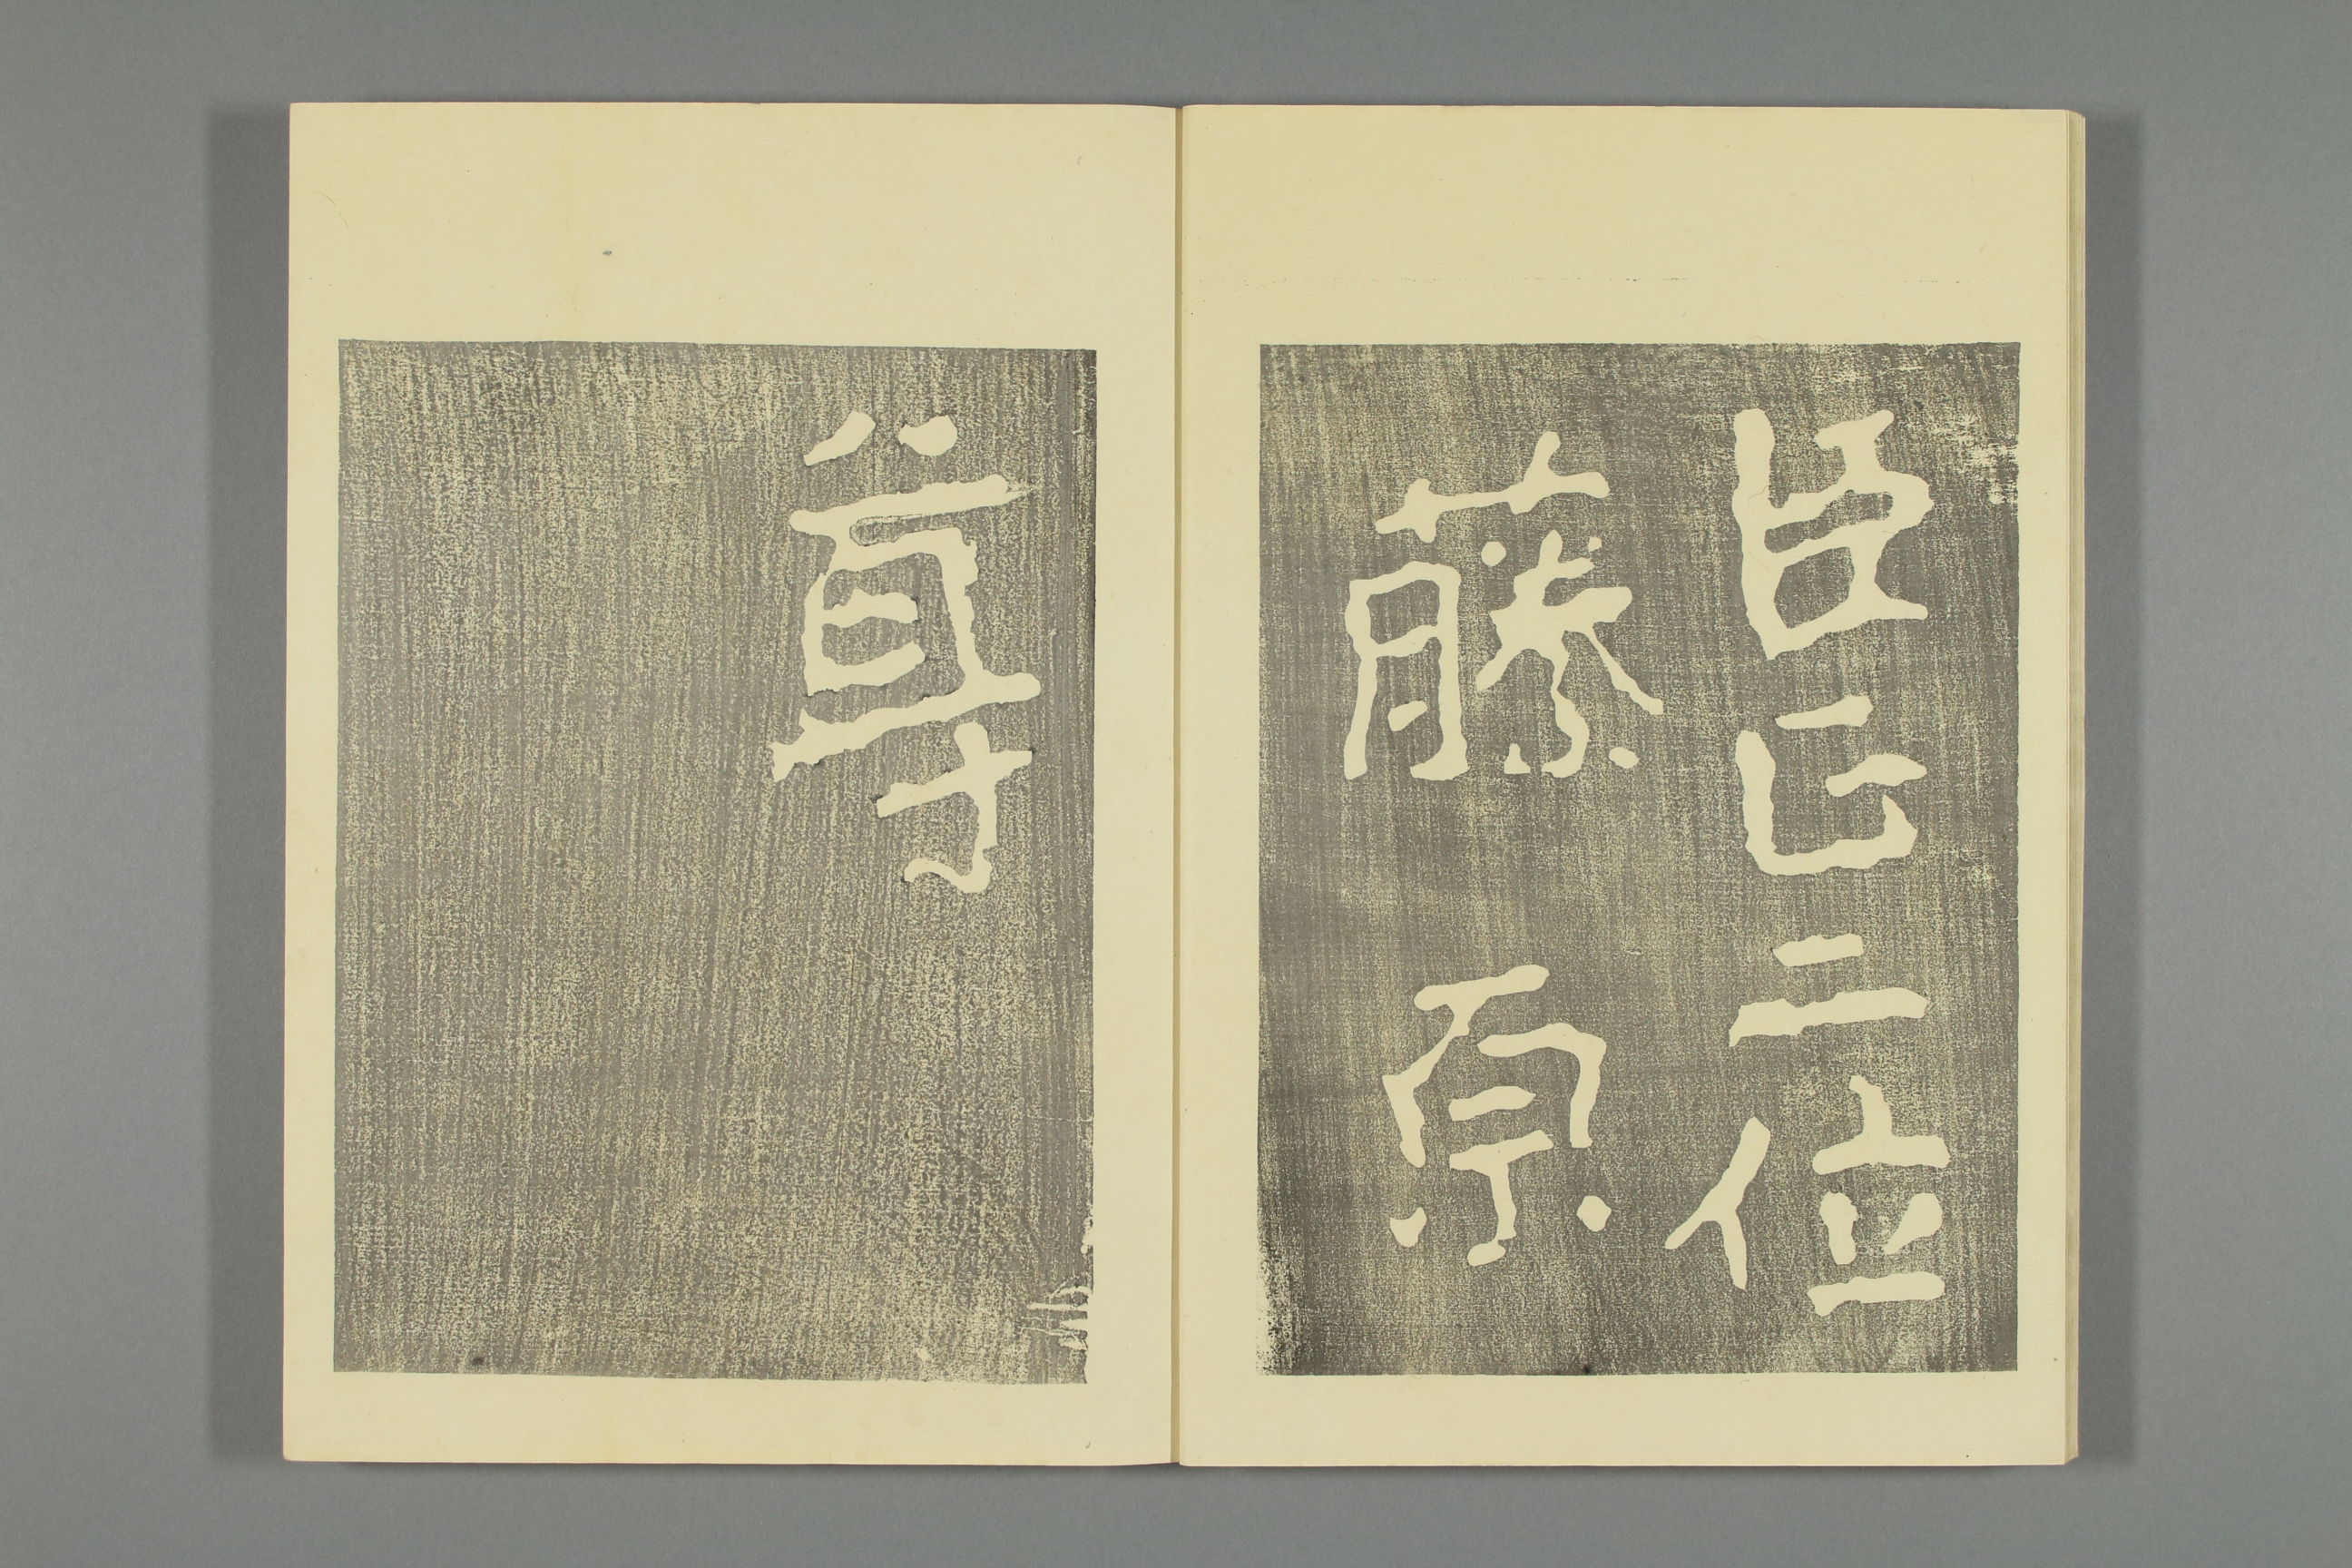 臣正二位
藤原
尊